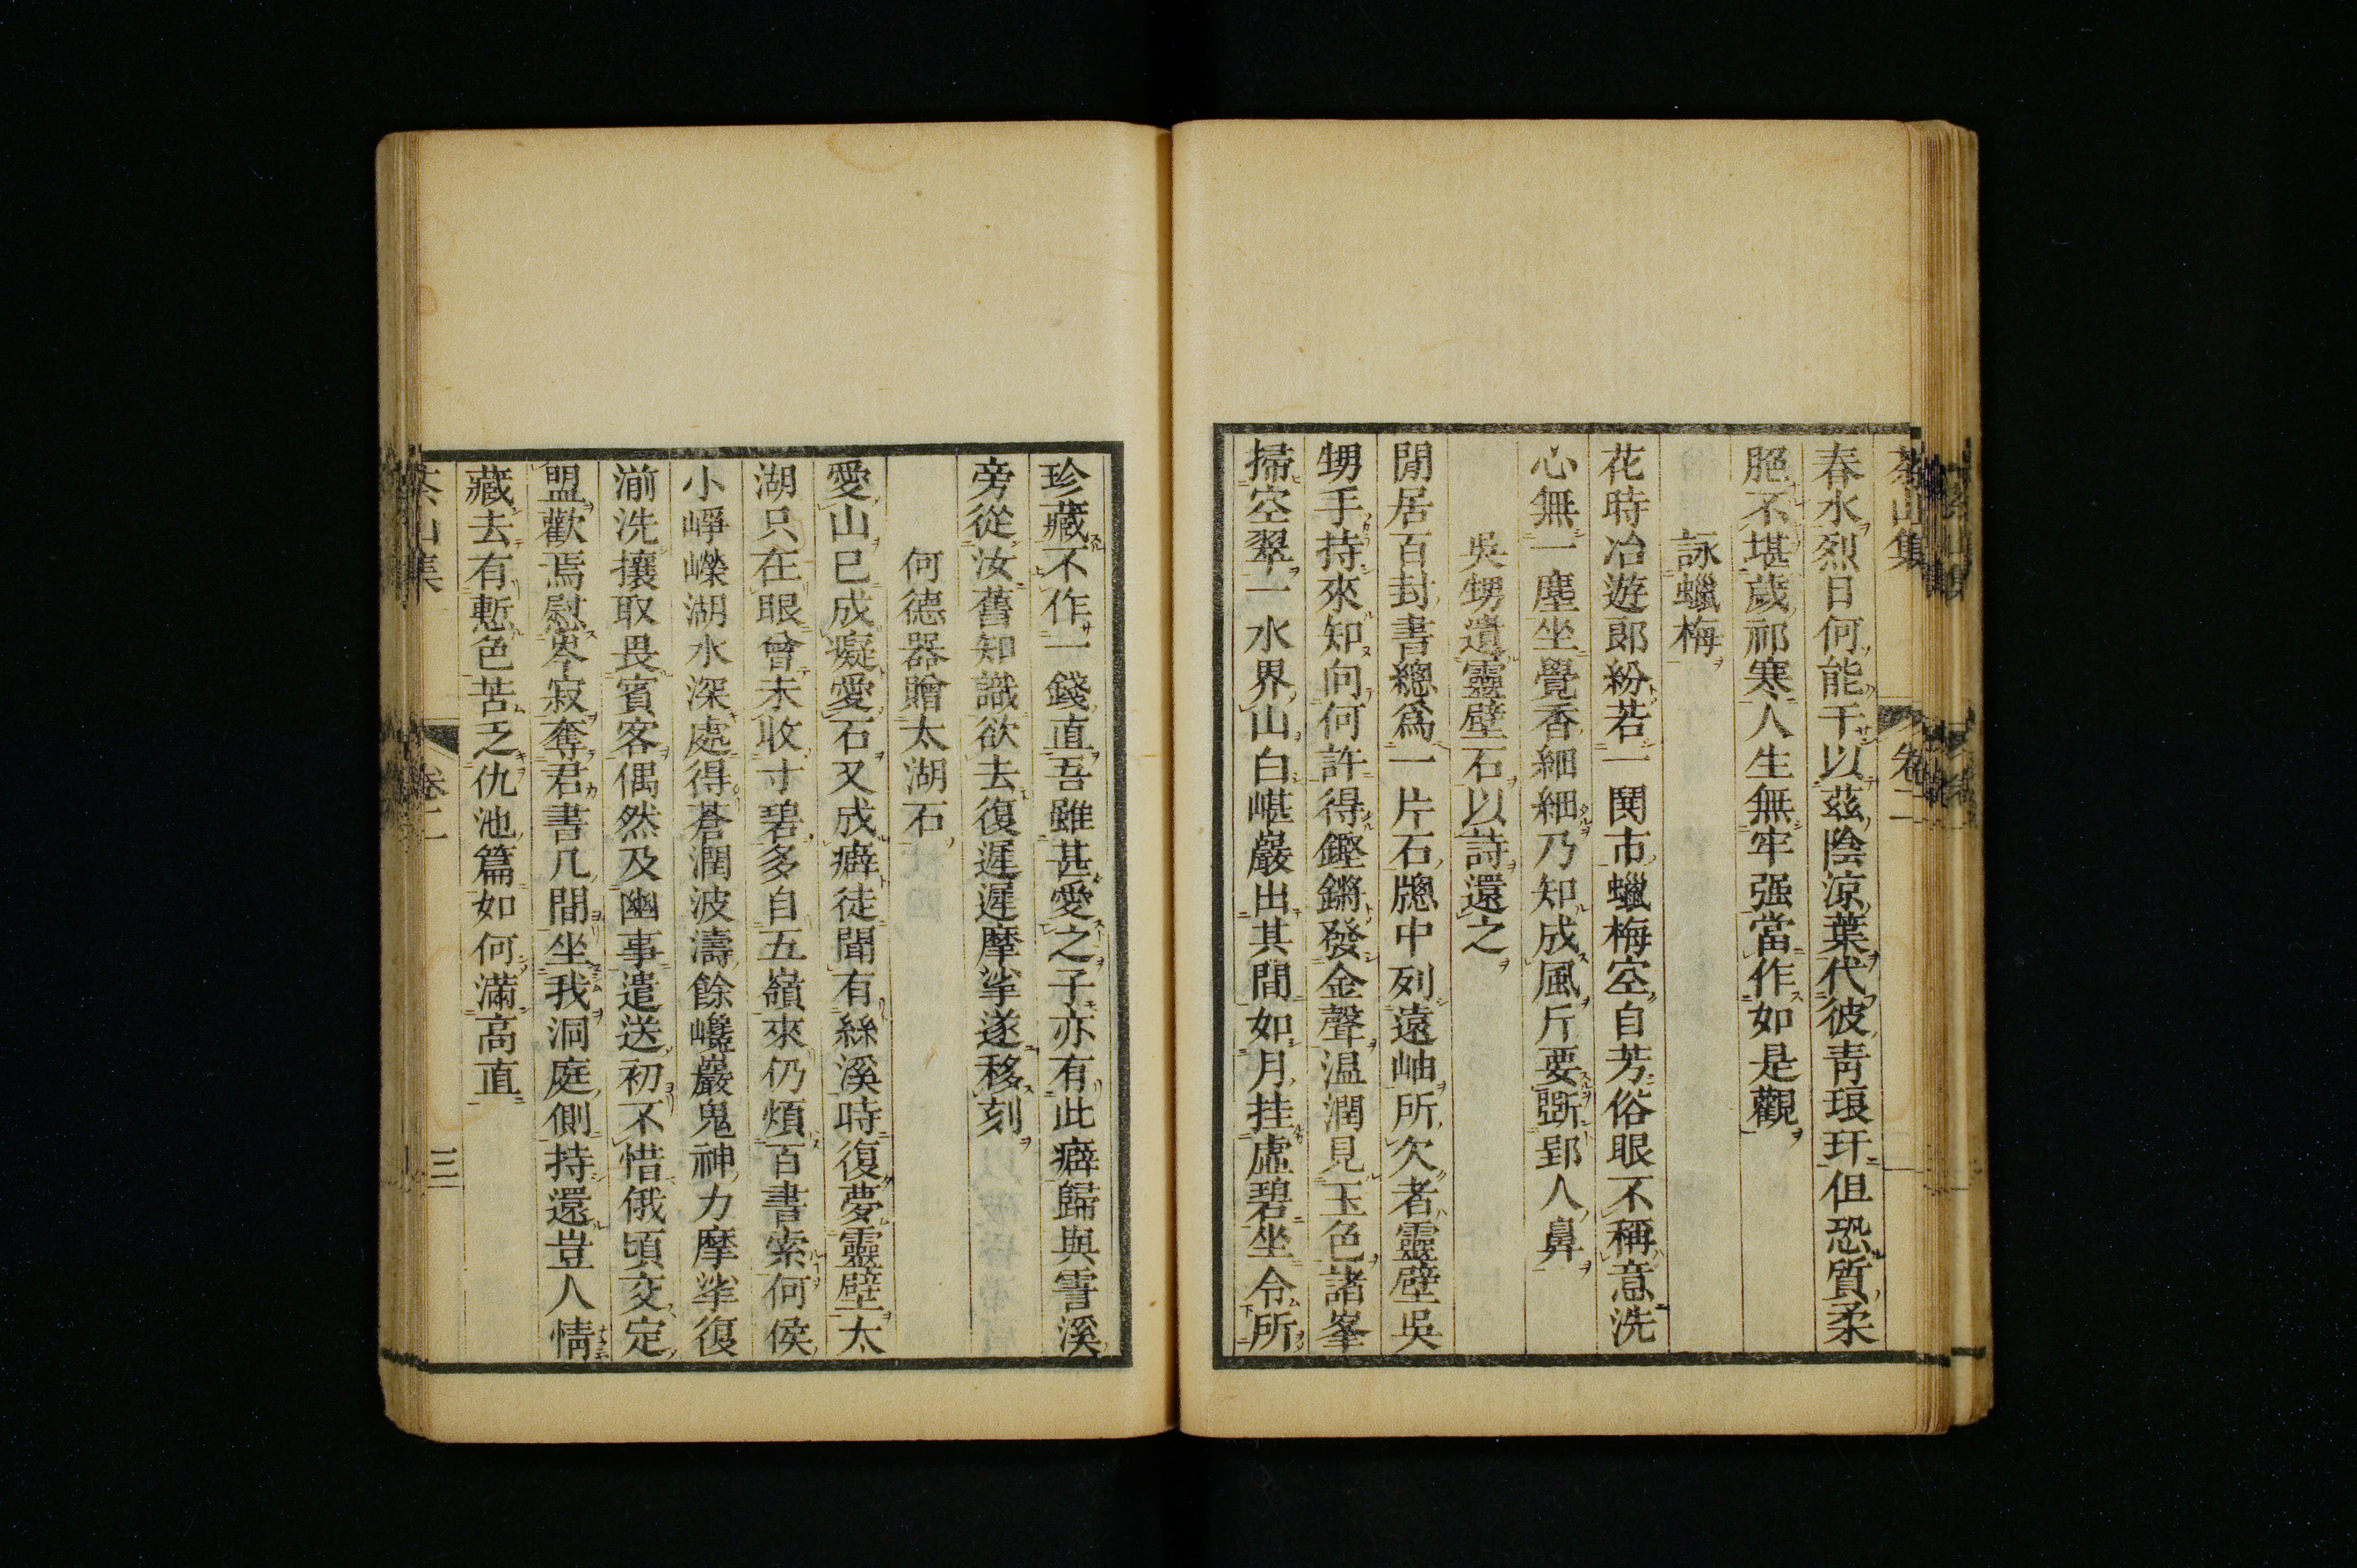 茶山集 卷二
春水烈日何能干以茲陰涼葉代彼靑琅玕但恐質柔
脃不堪歲祁寒人生無牢强當作如是觀
詠蠟梅
花時冶遊郎紛若一鬨市蠟梅空自芳俗眼不稱意洗
心無一塵坐覺香細細乃知成風斤要斲郢人鼻
吳甥遺靈壁石以詩還之
閒居百封書總爲一片石牕中列遠岫所欠者靈壁吳
甥手持來知向何許得鏗鏘發金聲温潤見玉色諸峯
掃空翠一水界山白嵁巖出其間如月挂虛碧坐令所
珍藏不作一錢直吾雖甚愛之子亦有此癖歸與霅溪
旁從汝舊知識欲去復遲遲摩挲遂移刻
何德器贈太湖石
愛山已成癡愛石又成癖徒聞有絲溪時復夢靈壁太
湖只在眼曾未收寸碧多自五嶺來仍煩百書索何侯
小崢嶸湖水深處得蒼潤波濤餘巉巖鬼神力摩挲復
湔洗攘取畏賓客偶然及幽事遣送初不惜俄頃交定
盟歡焉慰岑寂奪君書几間坐我洞庭側持還豈人情
藏去有慙色苦乏仇池篇如何滿高直
茶山集 卷二 三